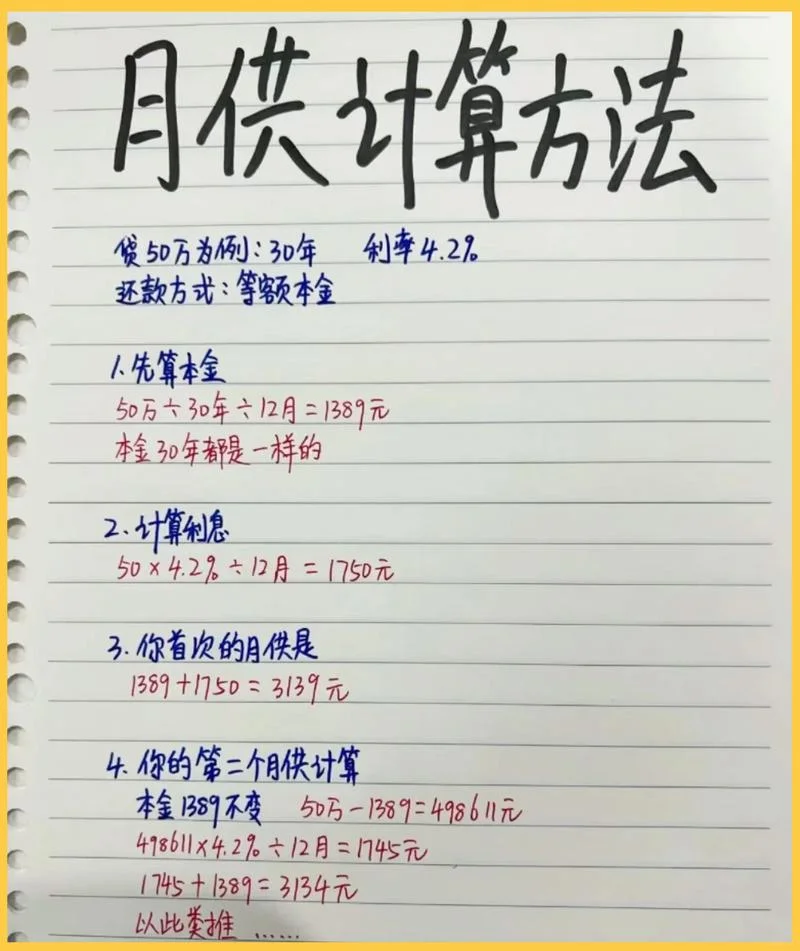 月供计算方法
贷50万为例：30年 利率4.2%
还款方式：等额本金
1.先算本金
50万÷30年÷12月=1389元
本金30年都是一样的
2.计算利息
50×4.2%÷12月=1750元
3.你首次的月供是
1389+1750=3139元
4.你的第二个月供计算
本金1389不变 50万-1389=498611元
498611×4.2%÷12月=1745元
1745+1389=3134元
以此类推……